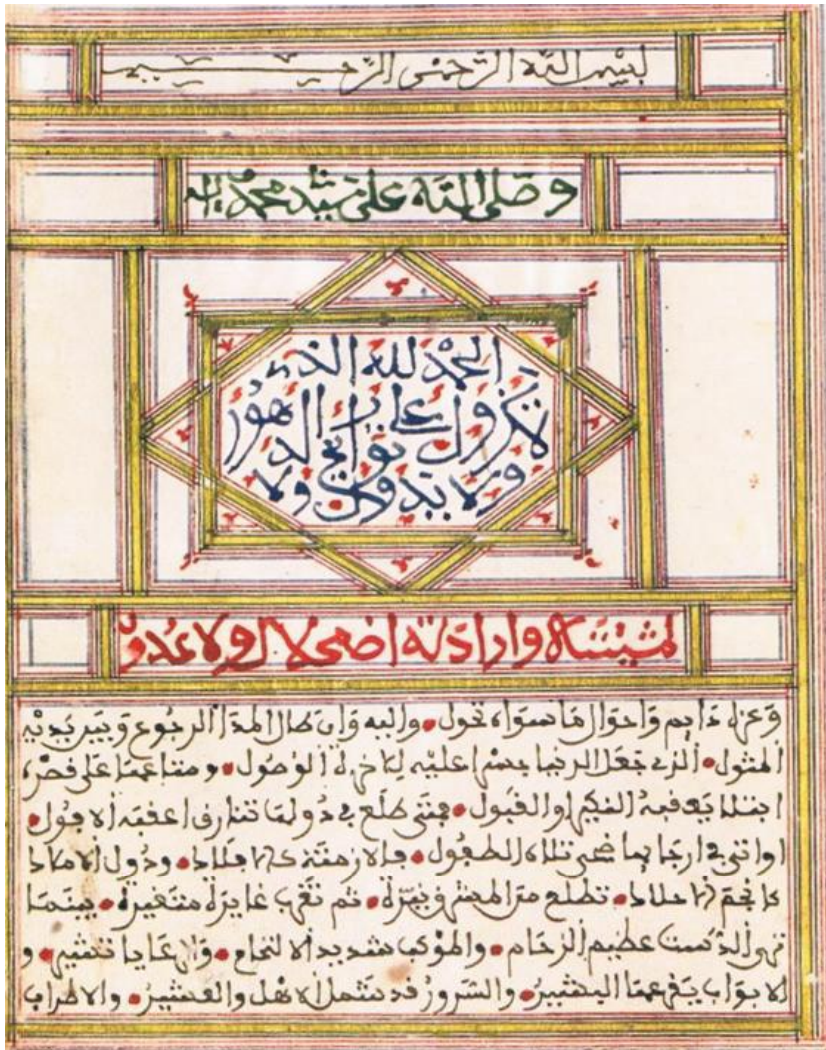 بسم الله الرحمن الرحيم
وصلى الله على سيد محمد
الحمد لله الذي
لا
ولا ولا
لمشيئته وارادته اضمحلال ولا
وعزه دايم واحوال ما سواه تحول واليه وان طال المدا الرجوع وبين يديه
المثول الذي جعل الدنيا جسرا عليه للاخرة الوصول ومتاعها على قصره
ابتلا يعقبه النكير او القبول فمتى طلع اعقبه الافول
او ارجايها ضحى تلاه الطفول فالازمنة كالافلاك ودول الاملاك
كانجم الاحلاك تطلع من المشرق نيرة ثم تغرب غايرة متغيرة بينما
ترى الدست عظيم الزحام والموكب شديد الالتحام والرعايا تشير و
الابواب يقرعها البشير والسرور قد شمل الاهل والعشير والاطراب